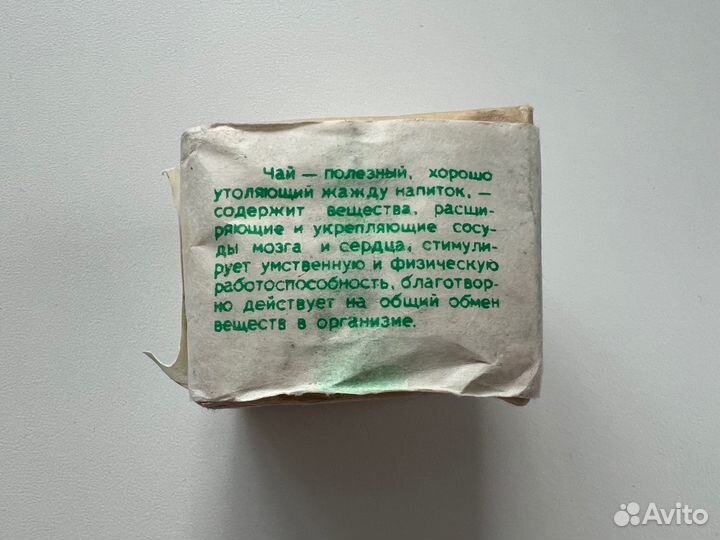 Чай — полезный, хорошо
утоляющий жажду напиток, —
содержит вещества, расши-
ряющие и укрепляющие сосу-
ды мозга и сердца, стимули-
рует умственную и физическую
работоспособность, благотвор-
но действует на общий обмен
веществ в организме.
Avito